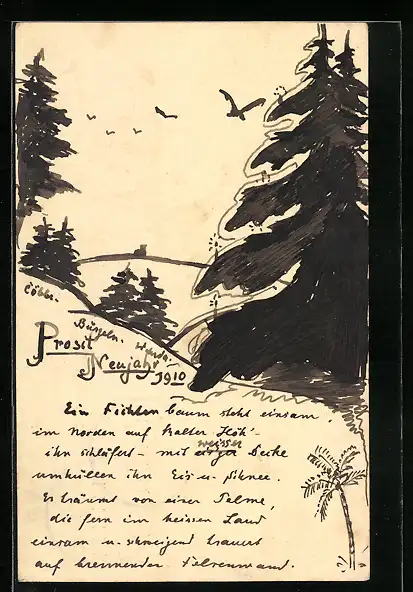 Prosit
Neujahr
1910
Ein Fichtenbaum steht einsam,
im Norden auf kalter Höh'-
weisser
ihn schläfert - mit Decke
umhüllen ihn Eis u. Schnee.
Er träumt von einer Palme,
die fern im heissen Land
einsam u. schweigend trauert
auf brennender Felsenwand.